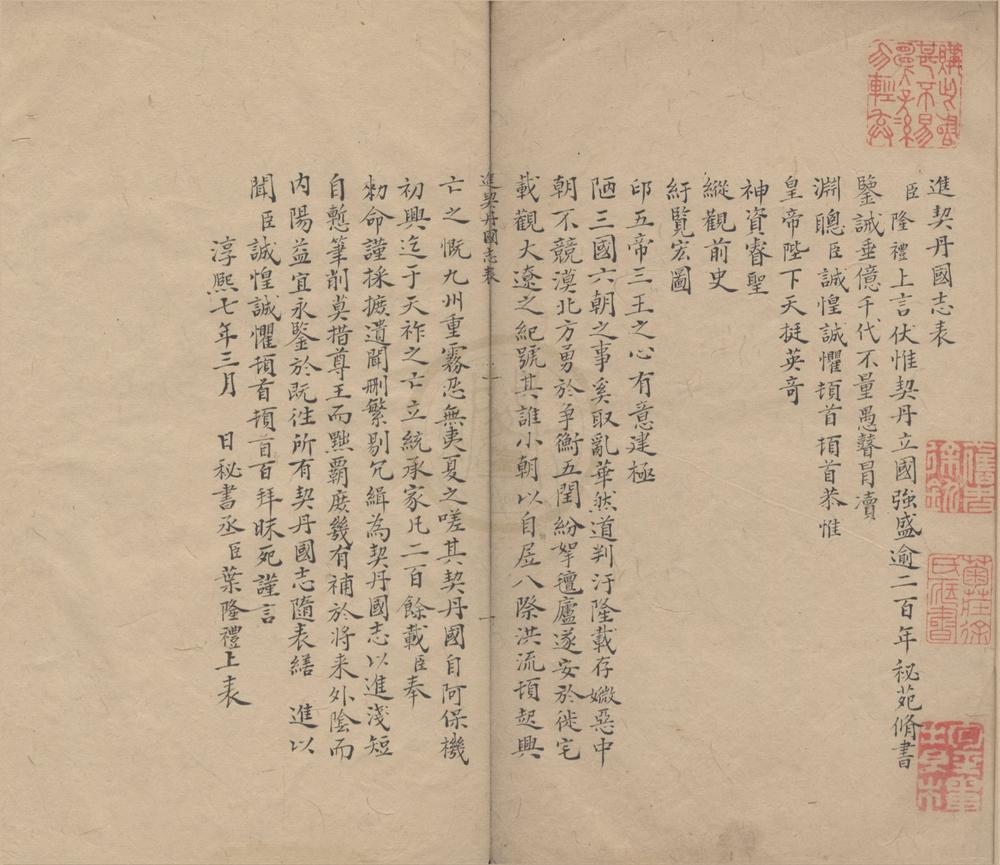 進契丹國志表
臣隆禮上言伏惟契丹立國強盛逾二百年秘苑脩書
鑒誡垂億千代不量愚瞽冒瀆
淵聰臣誠惶誠懼頓首頓首恭惟
皇帝陛下天挺英奇
神資睿聖
縱觀前史
紆覽宏圖
卬五帝三王之心有意建極
陋三國六朝之事奚取亂華然道判汙隆載存媺惡中
朝不競漠北方勇於爭衡五閏紛挐氊廬遂安於徙宅
載觀大遼之紀號其誰小朝以自居八際洪流頓起興
進契丹國志表
一
亡之慨九州重霧忍無夷夏之嗟其契丹國自阿保機
初興迄于天祚之亡立統承家凡二百餘載臣奉
勑命謹採摭遺聞刪繁剔冗緝為契丹國志以進淺短
自慙筆削莫措尊王而黜霸庶幾有補於將来外陰而
内陽益宜永鑒於既往所有契丹國志隨表繕 進以
聞臣誠惶誠懼頓首頓首百拜昧死謹言
淳熙七年三月 日秘書丞臣葉隆禮上表
購此書
甚不易
勿輕